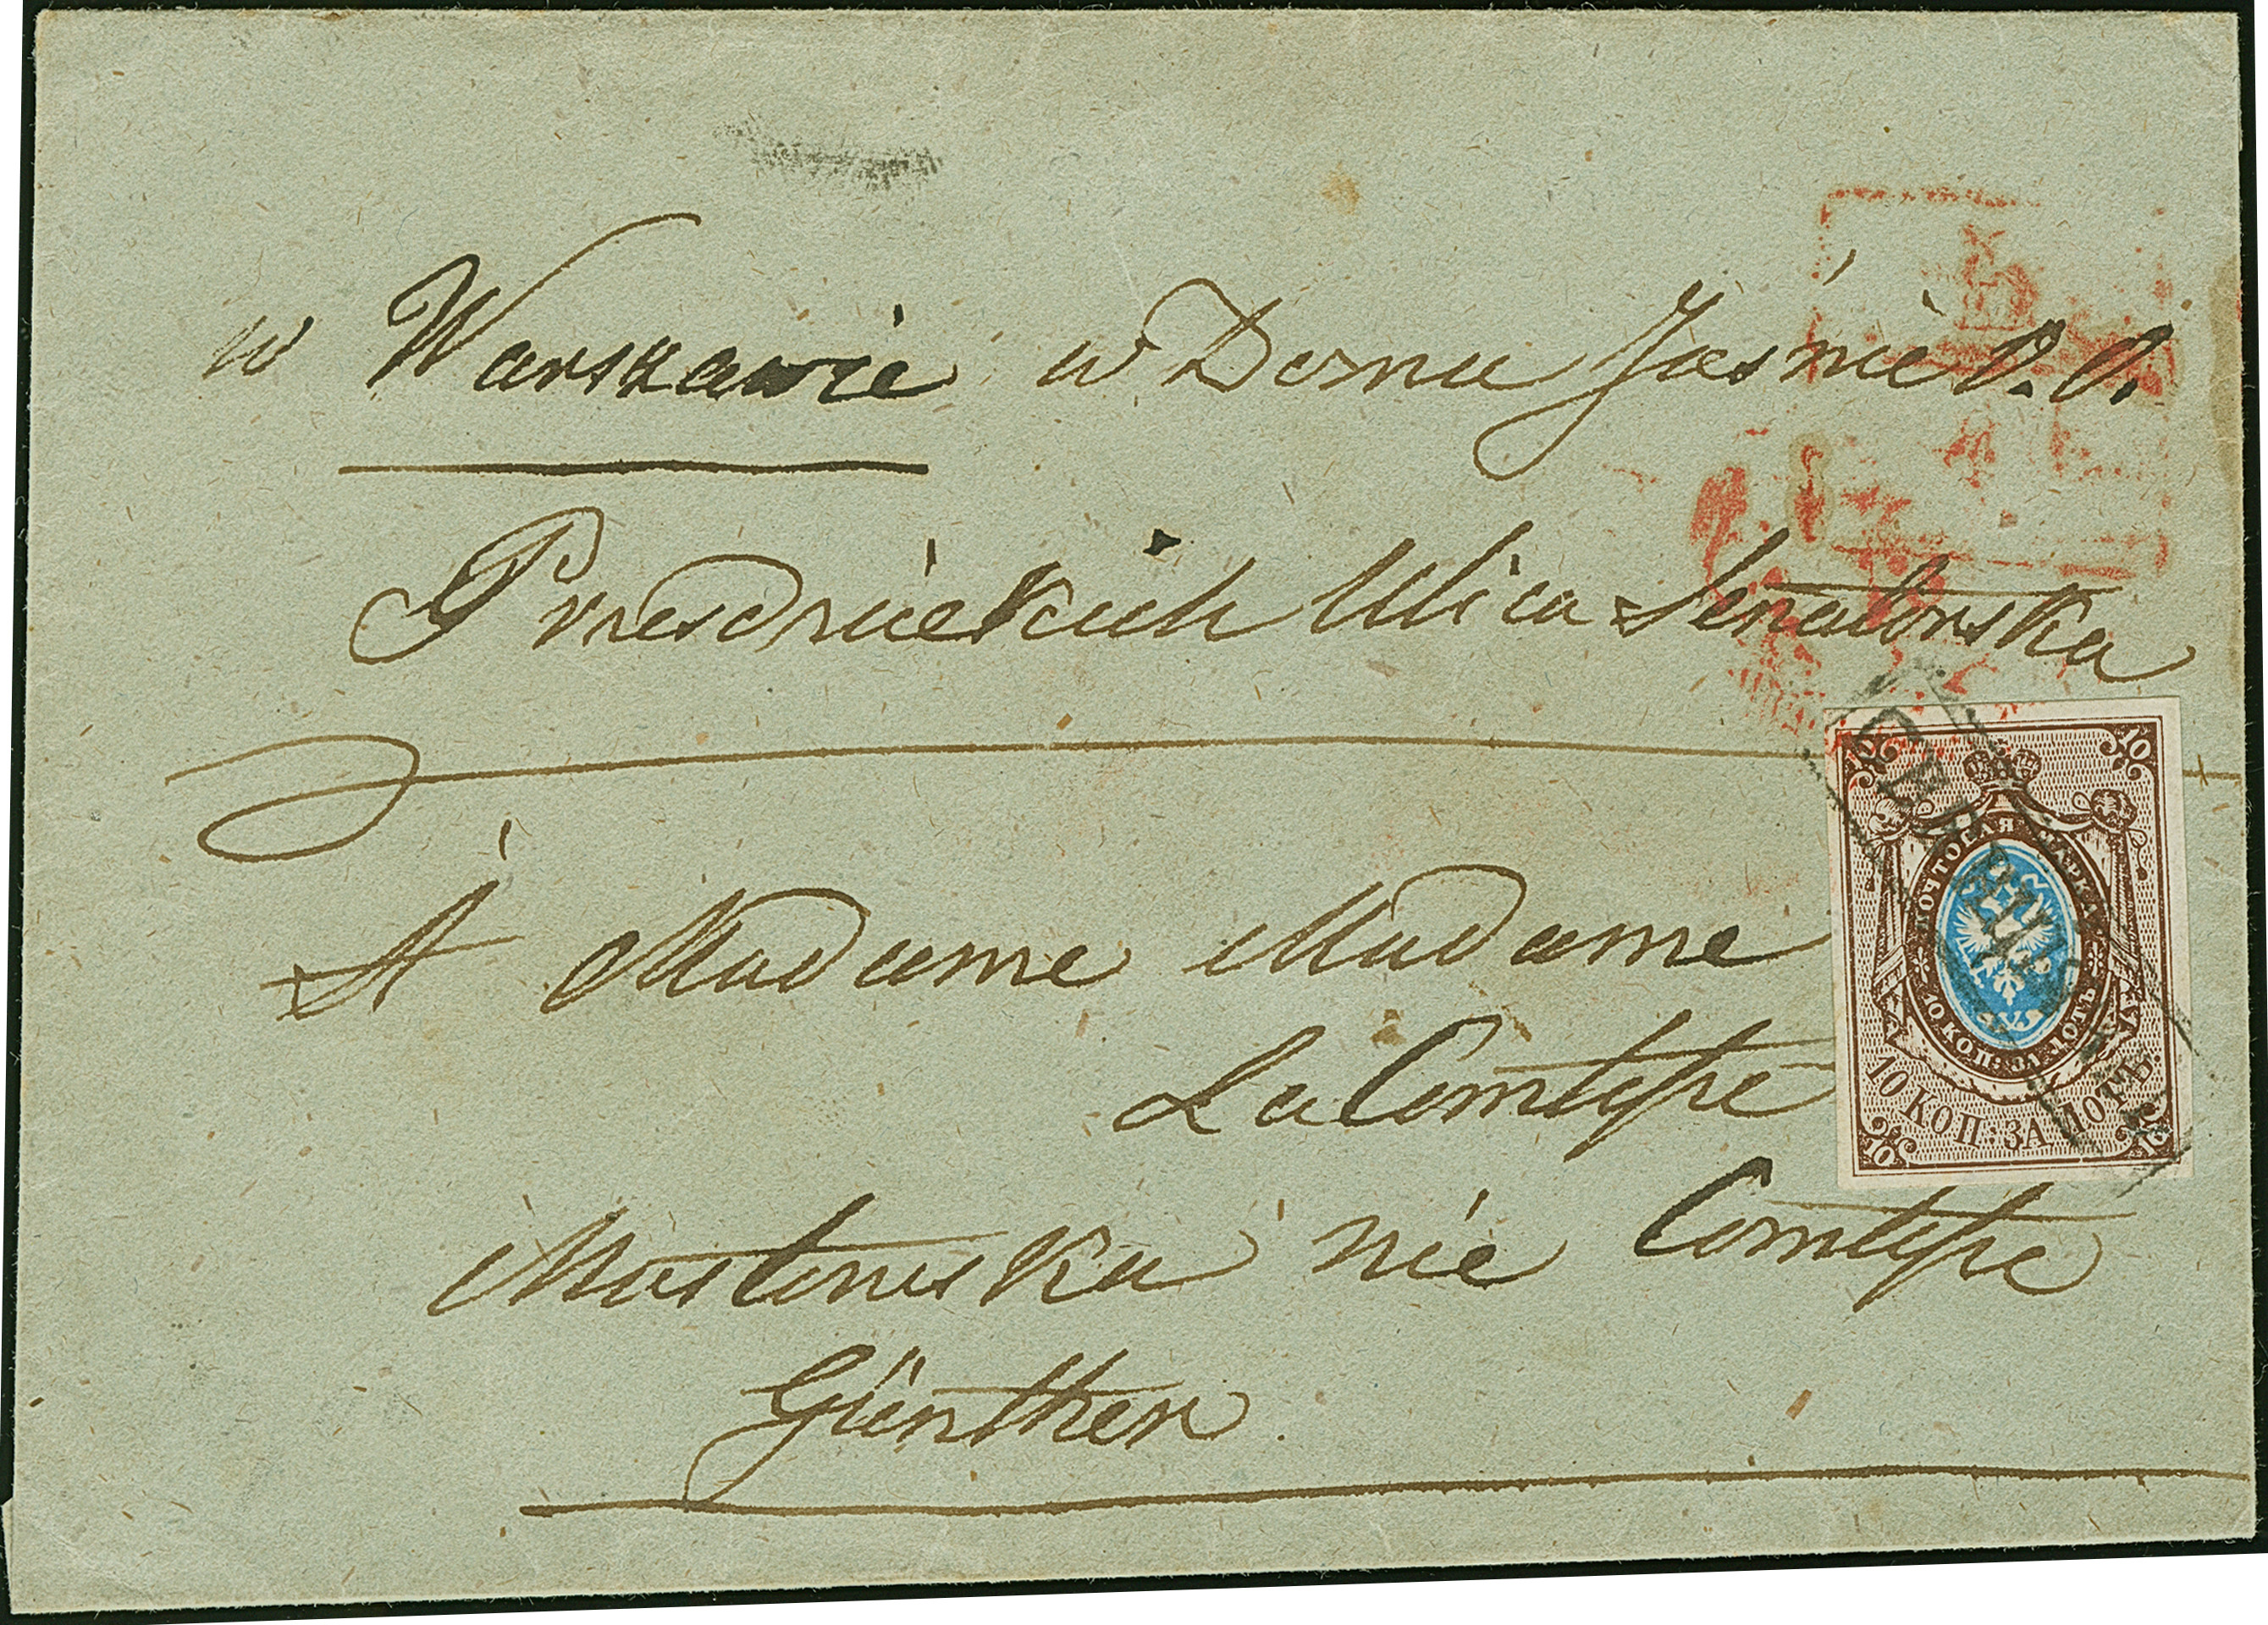 w Warszawie w Domu Jaśnie O. O.
Ulica Senatorska
A Madame Madame
La Comtesse
Mostowska née Comtesse
Günther
10 10
ПОЧТОВАЯ МАРКА
10 КОП. ЗА ЛОТЪ
10 КОП: ЗА ЛОТЪ.
10 10